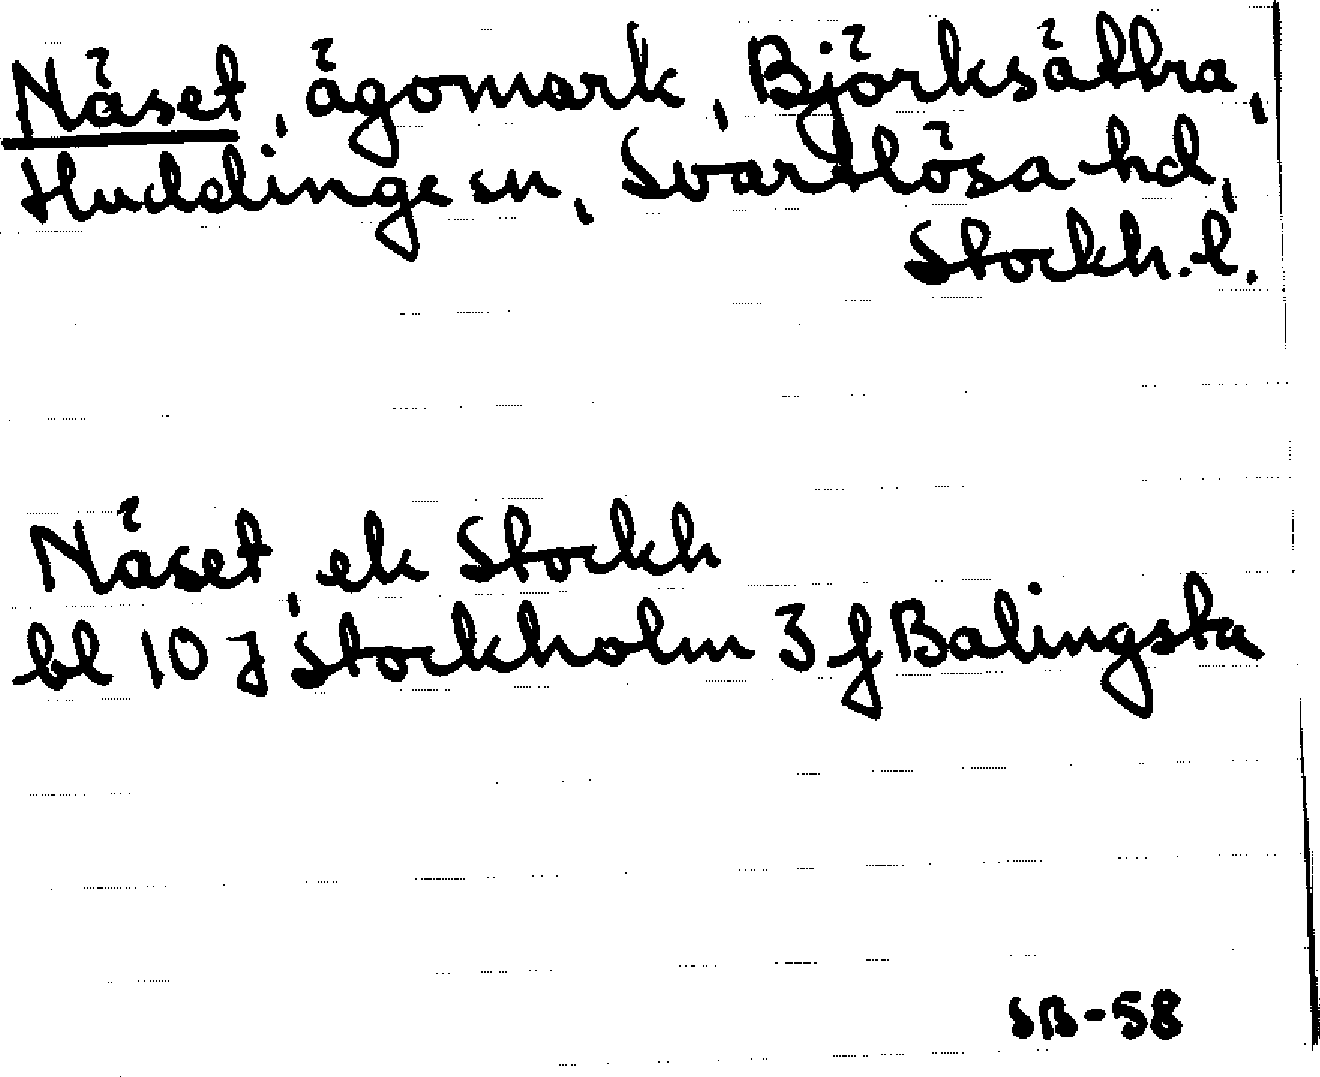 Näset, ägomark, Björksättra,
Huddinge sn, Svartlösa hd,
Stockh. l.
Näset, ek Stockh
bl 10 J Stockholm 3 f Balingsta
SB-58